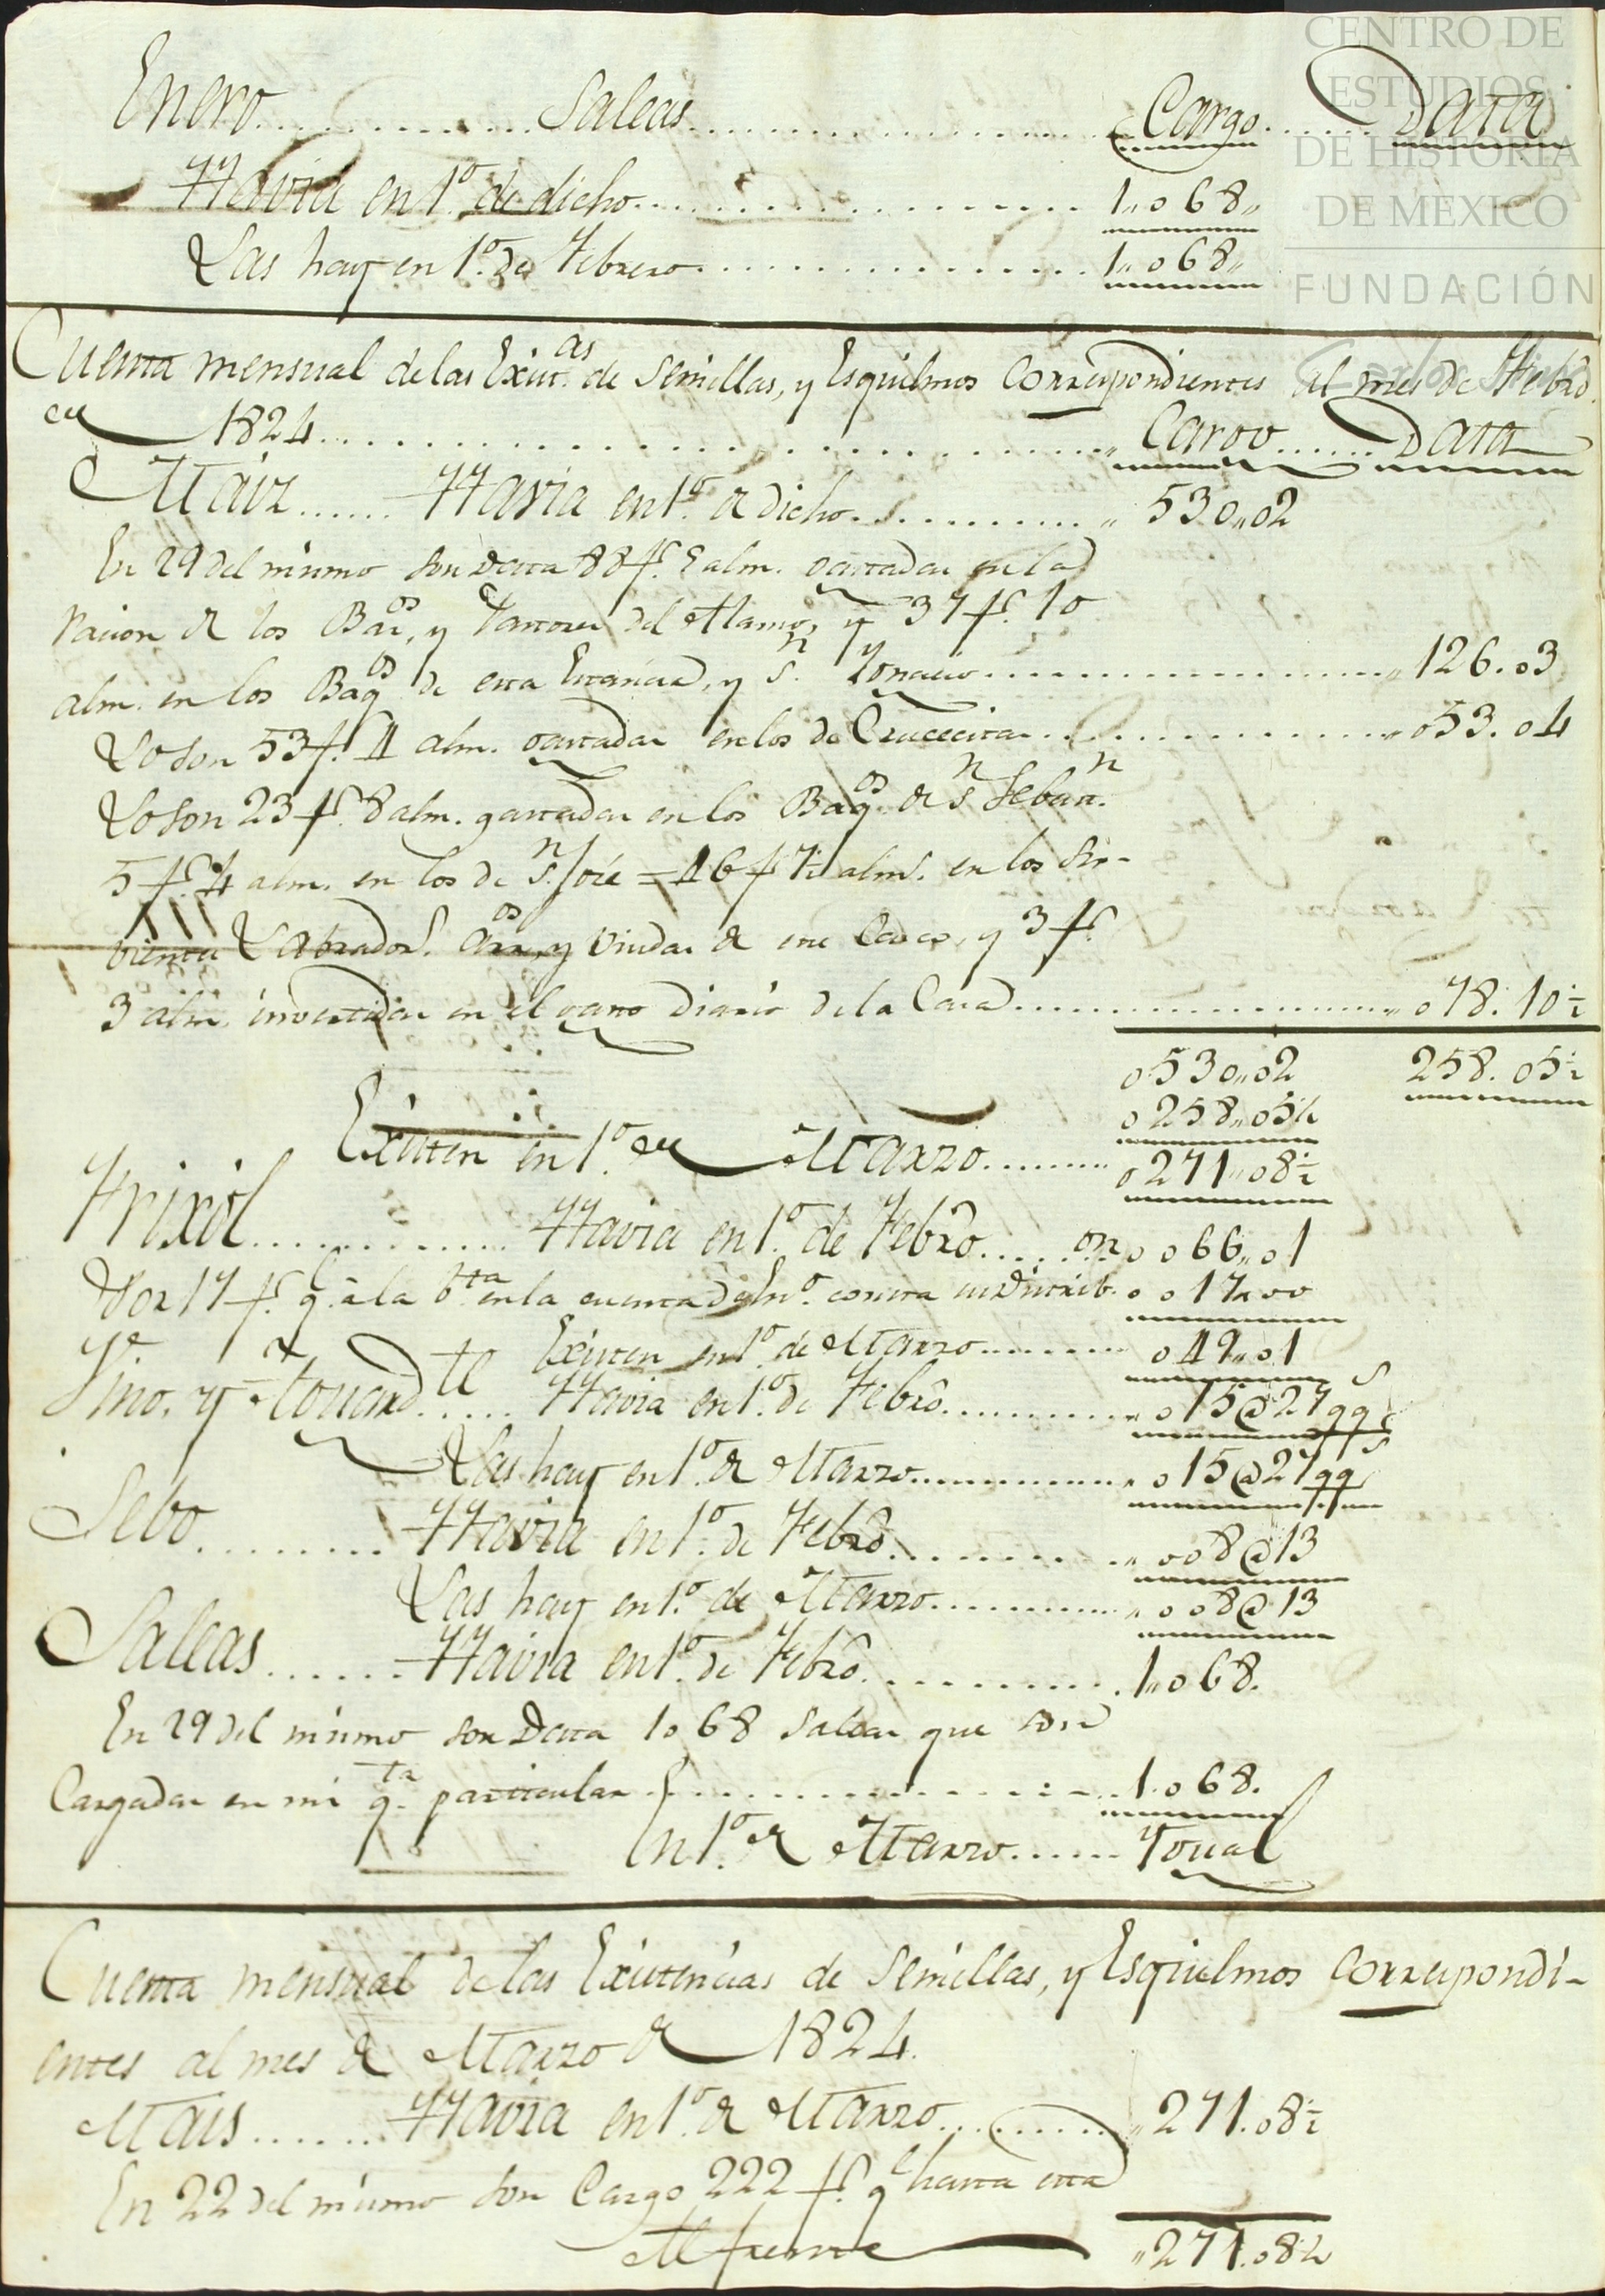 CENTRO DE
ESTUDIOS
DE HISTORIA
DE MÉXICO
FUNDACIÓN
Enero............Saleas..................Cargo.......Data
Havia en 1º. de dicho.................. 1,,o68,,
Las hay en 1º. de Febrero.................. 1,,o68,,
Cuenta mensual de las Exist.as de Semillas, y Esquilmos Correspondientes al mes de Febro.
de 1824.............................. Cargo......Data
Maiz...... Havia en 1º. de dicho............ 530,,02
En 29 del mismo son Data 88 f.s 5 alm. gastadas en la
racion de los Baq.os, y Pastores del Alamo, y 37 f.s 10
alm. en los Baq.os de esta Estancia, y S.n Ygnacio.................. 126.03
Yo son 53 f.s 4 alm. gastadas en los de Crucecita.................. 053.04
Yo son 23 f.s 8 alm. gastadas en los Baq.os de S.n Seban.n
5 f.s 4 alm. en los de S.n José = 46 f.s 7½ alm.s en los Sir-
vientes Labrador.s Arr.os y Viudas de este Casco, y 3 f.s
3 alm. invertidas en el gasto Diario de la Casa.................. 078.10½
0530,,02 258.05½
0258,,05½
Existen en 1º. de Marzo......... 0271,,08½
Frixol............ Havia en 1º. de Febro......... 0066,,01
Por 17 f.s q.e a la b.ta en la cuenta de En.o consta 0017,,00
Existen en 1º. de Marzo......... 049,,01
Pino, y Aguard.te Havia en 1º. de Febro............ 015@27 qq.s
Las hay en 1º. de Marzo............ 015@27 qq.s
Sebo......... Havia en 1º. de Febro............ 008@13
Las hay en 1º. de Marzo............ 008@13
Saleas...... Havia en 1º. de Febro............ 1,,o68.
En 29 del mismo son Data 1o68 Saleas que son
Cargadas en mi q.ta particular.................. 1.o68.
En 1º. de Marzo...... Ygual
Cuenta mensual de las Existencias de Semillas, y Esquilmos Correspondi-
entes al mes de Marzo de 1824.
Mais....... Havia en 1º. de Marzo............ 271.08½
En 22 del mismo son Cargo 222 f.s q.e hasta esta
Al frente 271.08½